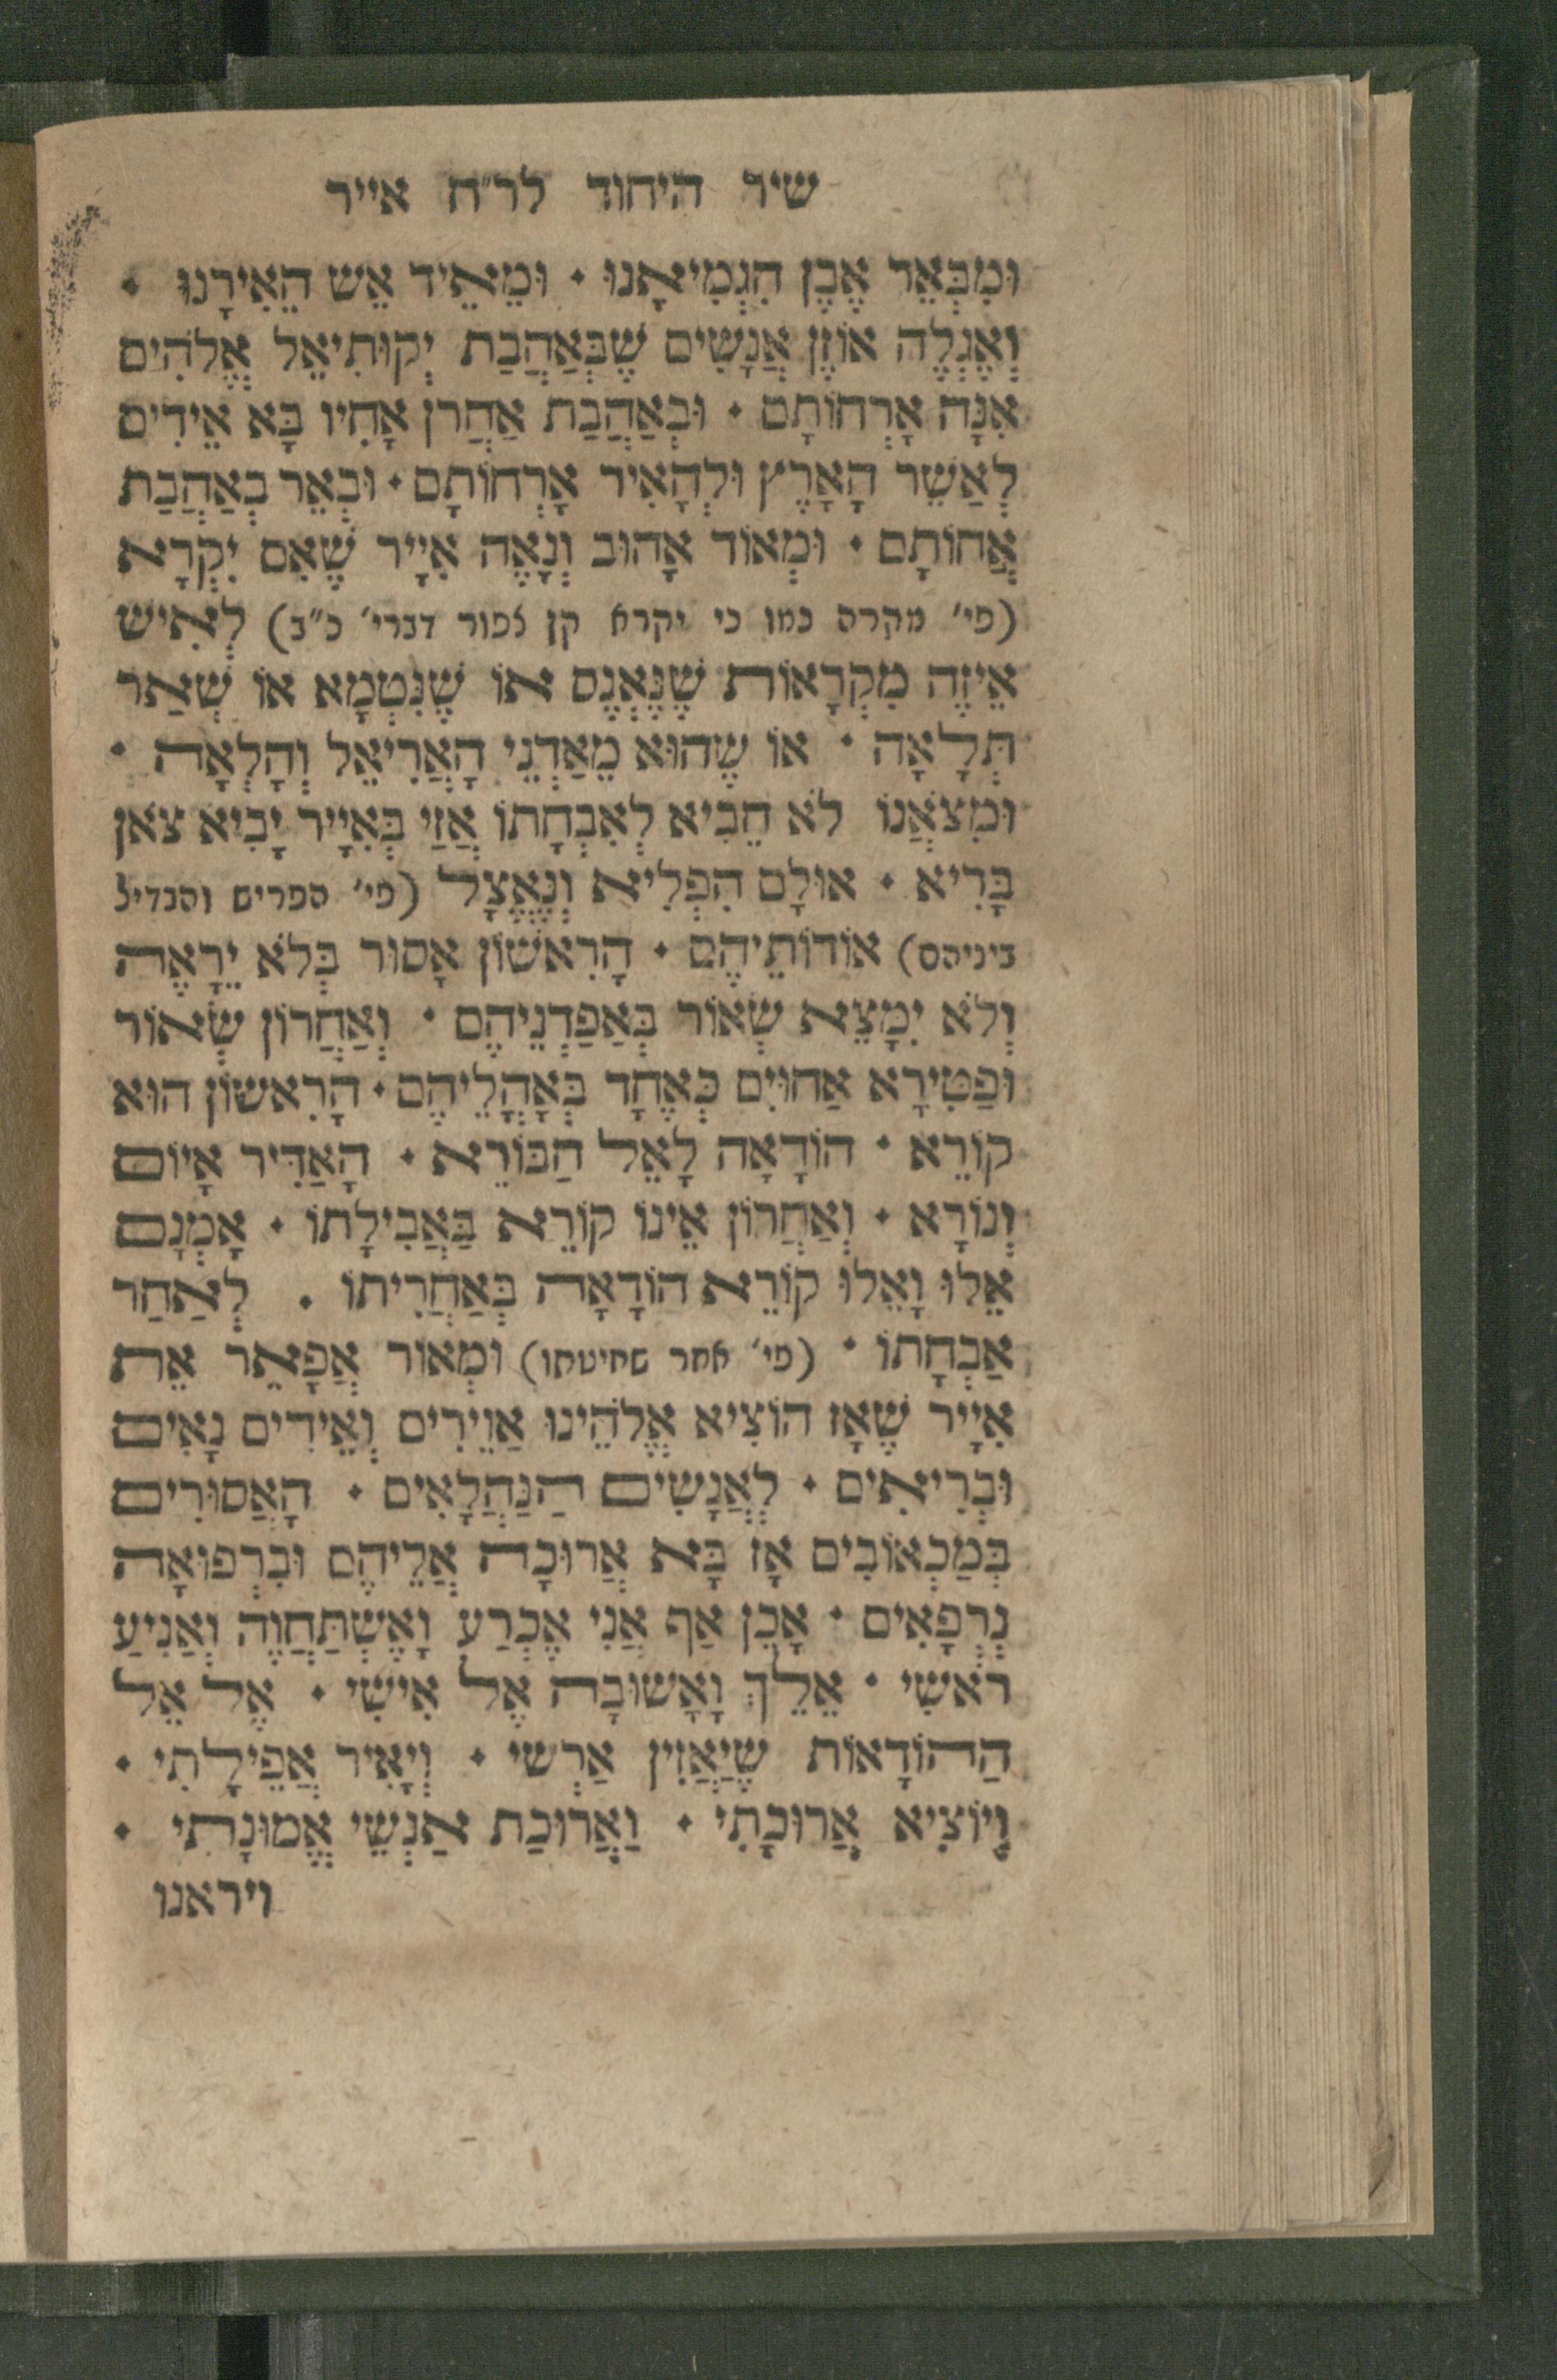 שיר היחוד לר״ח אייר
וּמִבְּאֵר אֶבֶן הִגְמִיאָנוּ · וּמֵאֵיד אֵשׁ הֵאִירָנוּ ·
וְאֶגְלֶה אוֹזֶן אֲנָשִׁים שֶׁבְּאַהֲבַת יְקוּתִיאֵל אֱלֹהִים
אִנָּה אָרְחוֹתָם · וּבְאַהֲבַת אַהֲרֹן אָחִיו בָּא אֵידִים
לְאַשֵּׁר הָאָרֶץ וּלְהָאִיר אָרְחוֹתָם · וּבְאֵר בְּאַהֲבַת
אֲחוֹתָם · וּמְאוֹד אָהוּב וְנָאֶה אִיָּיר שֶׁאִם יִקְרָא
(פי׳ מקרה כמו כי יקרא קן צפור דברי׳ כ״ב) לְאִישׁ
אֵיזֶה מִקְרָאוֹת שֶׁנֶּאֱנַס אוֹ שֶׁנִּטְמָא אוֹ שְׁאַר
תְּלָאָה · אוֹ שֶׁהוּא מֵאַדְנֵי הָאֲרִיאֵל וְהָלְאָה ·
וּמִצֹּאנוֹ לֹא הֵבִיא לְאִבְחָתוֹ אֲזַי בְּאִיָּיר יָבִיא צֹאן
בָּרִיא · אוּלָם הִפְלִיא וְנֶאֱצָל (פי׳ הפריש והבדיל
ביניהם) אוֹדוֹתֵיהֶם · הָרִאשׁוֹן אָסוּר בְּלֹא יֵרָאֶה
וְלֹא יִמָּצֵא שְׂאוֹר בְּאַפַּדְנֵיהֶם · וְאַחֲרוֹן שְׂאוֹר
וּפַטִּירָא אַחוּיִם כְּאֶחָד בְּאָהֳלֵיהֶם · הָרִאשׁוֹן הוּא
קוֹרֵא · הוֹדָאָה לָאֵל הַבּוֹרֵא · הָאַדִּיר אָיוֹם
וְנוֹרָא · וְאַחֲרוֹן אֵינוֹ קוֹרֵא בַּאֲכִילָתוֹ · אָמְנָם
אֵלּוּ וָאֵלּוּ קוֹרֵא הוֹדָאָה בְּאַחֲרִיתוֹ · לְאַחַר
אַבְחָתוֹ · (פי׳ אחר שחיטתו) וּמְאוֹר אֲפָאֵר אֵת
אִיָּיר שֶׁאָז הוֹצִיא אֱלֹהֵינוּ אַוֵּירִים וְאֵידִים נָאִים
וּבְרִיאִים · לְאֲנָשִׁים הַנַּהֲלָאִים · הָאֲסוּרִים
בְּמַכְאוֹבִים אָז בָּא אֲרוּכָה אֲלֵיהֶם וּבִרְפוּאָה
נִרְפָּאִים · אָכֵן אַף אֲנִי אֶכְרַע וָאֶשְׁתַּחֲוֶה וְאָנִיעַ
רֹאשִׁי · אֵלֵךְ וָאָשׁוּבָה אֶל אִישִׁי · אֶל אֵל
הַהוֹדָאוֹת שֶׁיַּאֲזִין אַרְשִׁי · וְיָאִיר אֲפֵילָתִי ·
וְיוֹצִיא אֲרוּכָתִי · וַאֲרוּכַת אַנְשֵׁי אֱמוּנָתִי ·
ויראנו